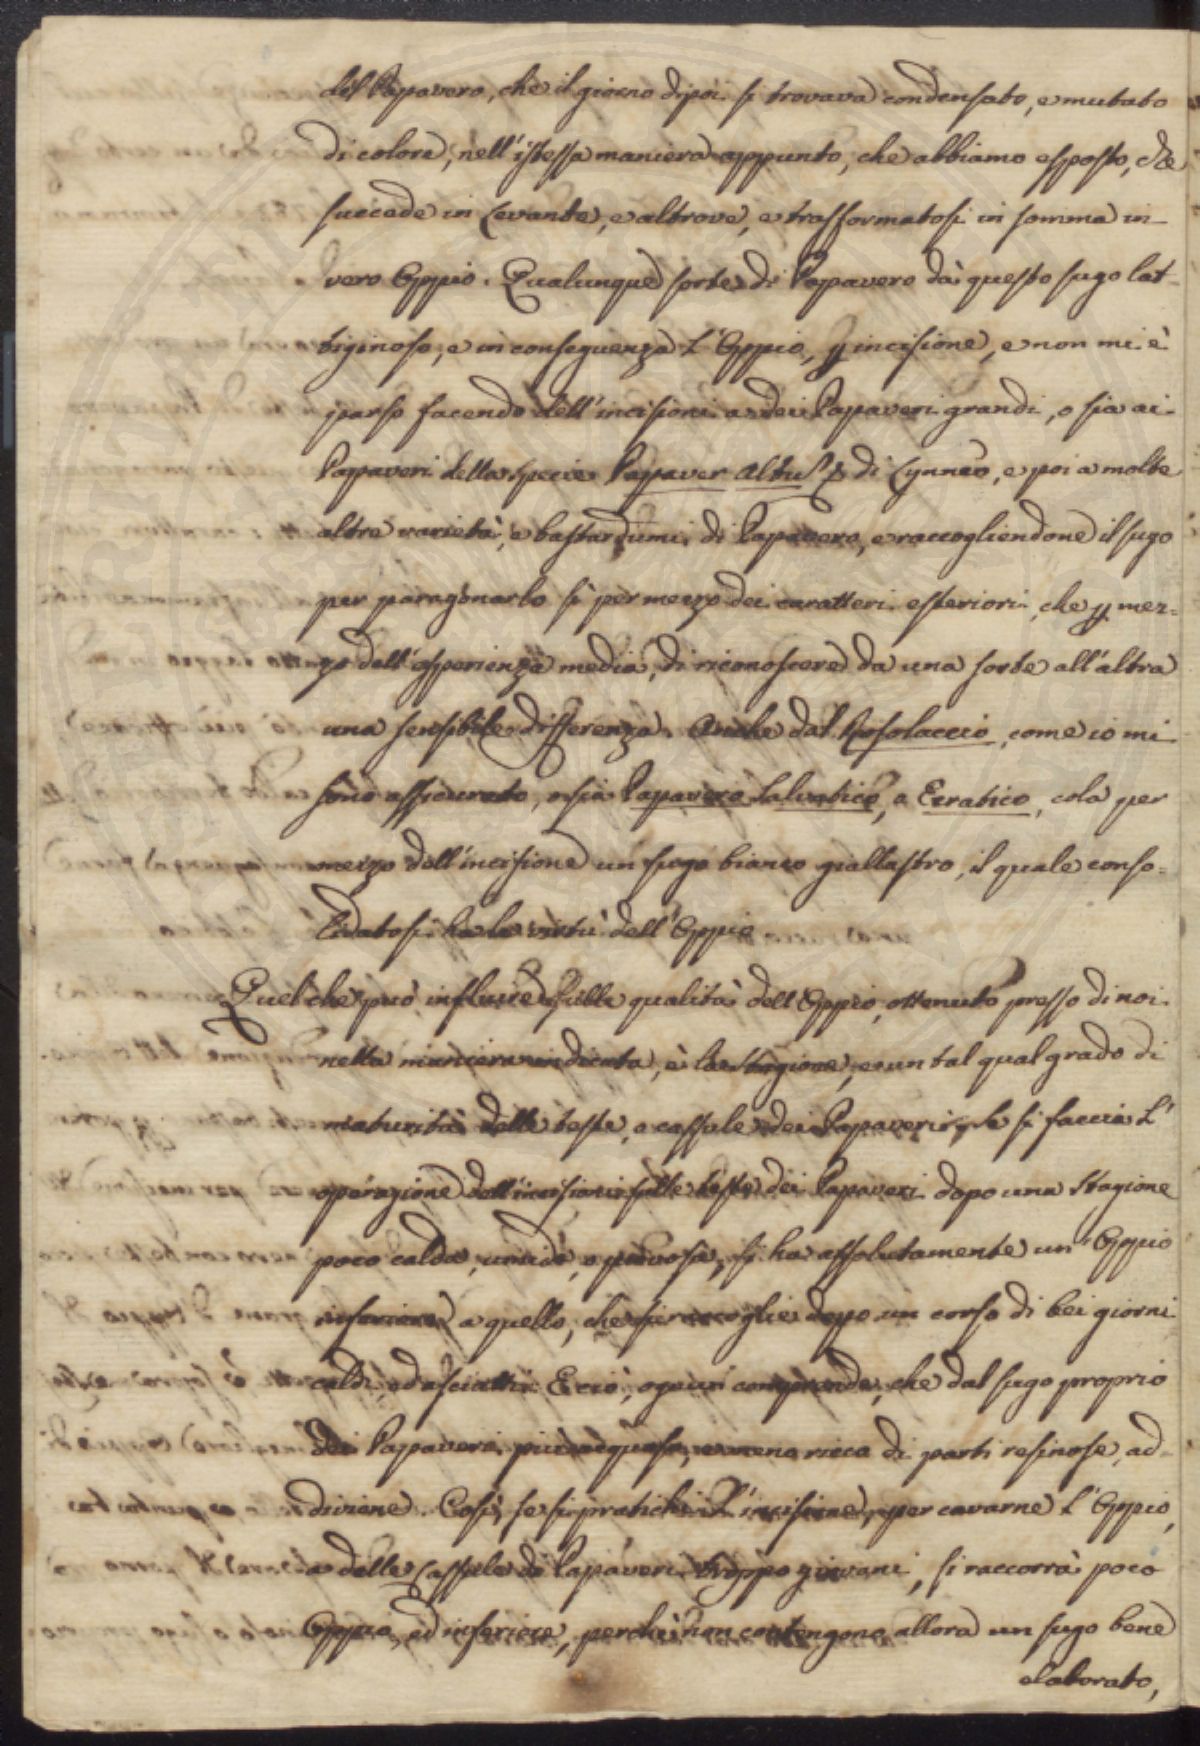 del Papavero, che il giorno dipoi si trovava condensato, e mutato
di colore, nell'istessa maniera appunto, che abbiamo esposto, che
succede in Levante, e altrove, e trasformatosi in somma in
vero Oppio. Qualunque sorte di Papavero dà questo sugo lat-
tiginoso, e in conseguenza l'Oppio, p incisione, e non mi è
parso facendo dell'incisioni a dei Papaveri grandi, o sia ai
Papaveri della specie Papaver album di Lynneo, e poi a molte
altre varietà, e bastardumi di Papavero, e raccogliendone il sugo
per paragonarlo sì per mezzo dei caratteri esteriori che p mez-
zo dell'esperienza media, di riconoscere da una sorte all'altra
una sensibile differenza. Anche dal Rosolaccio, come io mi
sono assicurato, o sia Papavero Salvatico, o Erratico, cola per
mezzo dell'incisione un sugo bianco giallastro, il quale conso-
lidatosi ha la virtù dell'Oppio
Quel che può influire sulla qualità dell'Oppio, ottenuto presso di noi
nella maniera indicata, è la stagione, e un tal qual grado di
maturità delle teste, o cassule dei Papaveri, Se si faccia l'
operazione dell'incisioni sulle teste dei Papaveri dopo una stagione
poco calda, umida, o piovosa, si ha assolutamente un'Oppio
inferiore a quello, che si raccoglie dopo un corso di bei giorni
caldi, ed asciutti. E ciò, ognun comprende, che dal sugo proprio
dei Papaveri più acquoso, e meno ricco di parti resinose, ad-
diviene. Così, se si pratichi l'incisione, per cavarne l'Oppio,
a delle Cassule di Papaveri troppo giovani, si raccorrà poco
Oppio, ed inferiore, perchè non contengono allora un sugo bene
elaborato,